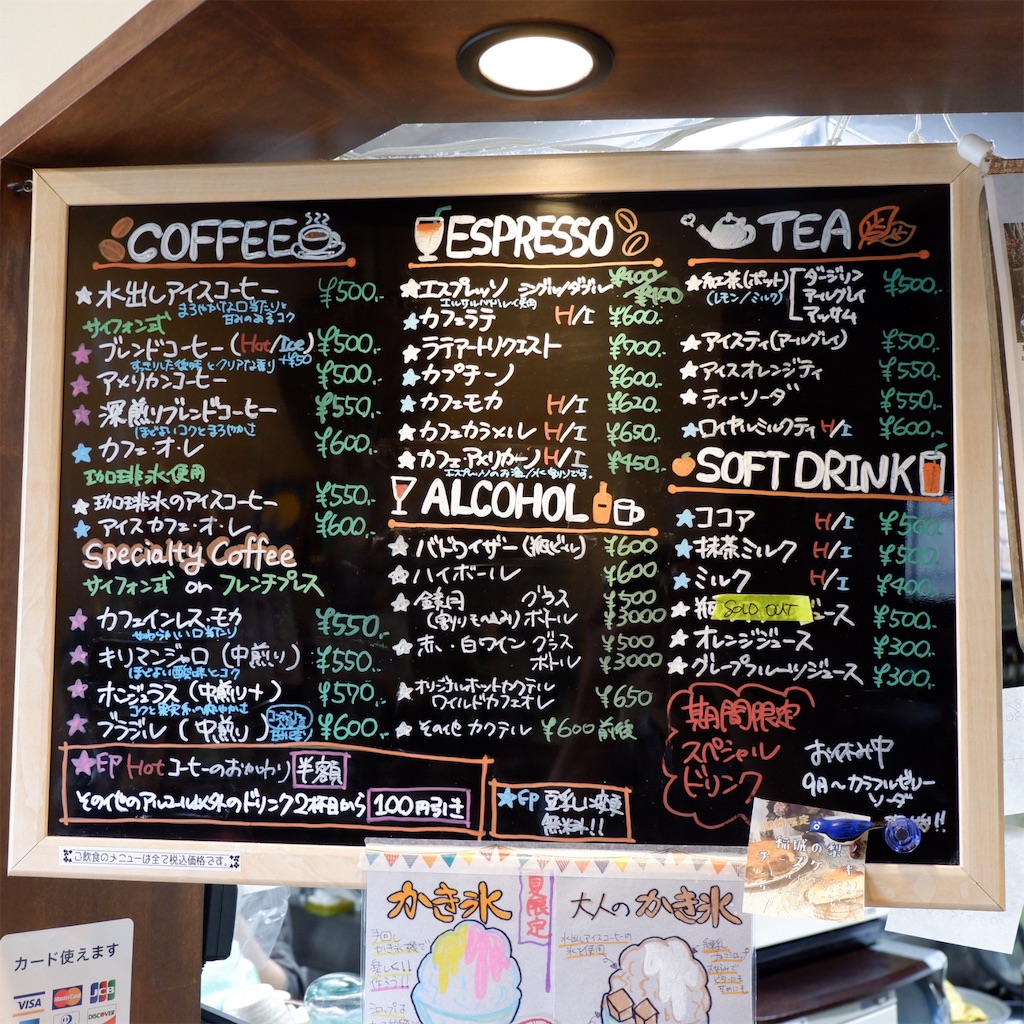 COFFEE
★水出しアイスコーヒー ¥500.-
まろやかな口当たりと
甘みのあるコク
サイフォン式
★ブレンドコーヒー(Hot/Ice) ¥500.-
すっきりした後味とクリアな香り +¥50
★アメリカンコーヒー ¥500.-
★深煎りブレンドコーヒー ¥550.-
ほどよいコクとまろやかさ
★カフェ・オ・レ ¥600.-
珈琲氷使用
★珈琲氷のアイスコーヒー ¥550.-
★アイスカフェ・オ・レ ¥600.-
Specialty Coffee
サイフォン式 or フレンチプレス
★カフェインレス・モカ ¥550.-
やわらかい口当たり
★キリマンジャロ(中煎り) ¥550.-
ほどよい酸味とコク
★ホンジュラス(中煎り+) ¥570.-
★ブラジル(中煎り) ¥600.-
★EP Hotコーヒーのおかわり半額
その他のアルコール以外のドリンク2杯目から 100円引き
ESPRESSO
★エスプレッソ シングル/ダブル ¥400/¥450
★カフェラテ H/I ¥600.-
★ラテアートリクエスト ¥700.-
★カプチーノ ¥600.-
★カフェモカ H/I ¥620.-
★カフェカラメル H/I ¥650.-
★カフェアメリカーノ H/I ¥450.-
エスプレッソのお湯/水割りです
ALCOHOL
★バドワイザー(瓶ビール) ¥600
★ハイボール ¥600
グラス ¥500
ボトル ¥3000
★赤・白ワイン グラス ¥500
ボトル ¥3000
★オリジナルホットカクテル
ワイルドカフェオレ ¥650
★その他カクテル ¥600前後
★EP 豆乳に変更
無料!!
TEA
★紅茶(ポット) ダージリン ¥500.-
(レモン/ミルク) アールグレイ
アッサム
★アイスティ(アールグレイ) ¥500.-
★アイスオレンジティ ¥550.-
★ティーソーダ ¥550.-
★ロイヤルミルクティ H/I ¥600.-
SOFT DRINK
★ココア H/I ¥500.-
★抹茶ミルク H/I ¥500.-
★ミルク H/I ¥400.-
★瓶 SOLD OUT ジュース ¥500.-
★オレンジジュース ¥300.-
★グレープフルーツジュース ¥300.-
期間限定
スペシャル
ドリンク
お休み中
9月～カラフルゼリー
ソーダ
ご飲食のメニューは全て税込価格です。
期間限定
稲城の梨
かき氷
夏限定
手回し
かき氷機で
楽しく!!
作ろう!!
シロップは
大人のかき氷
水出しアイスコーヒーの
氷を使用
カード使えます
VISA
MasterCard
JCB
DISCOVER